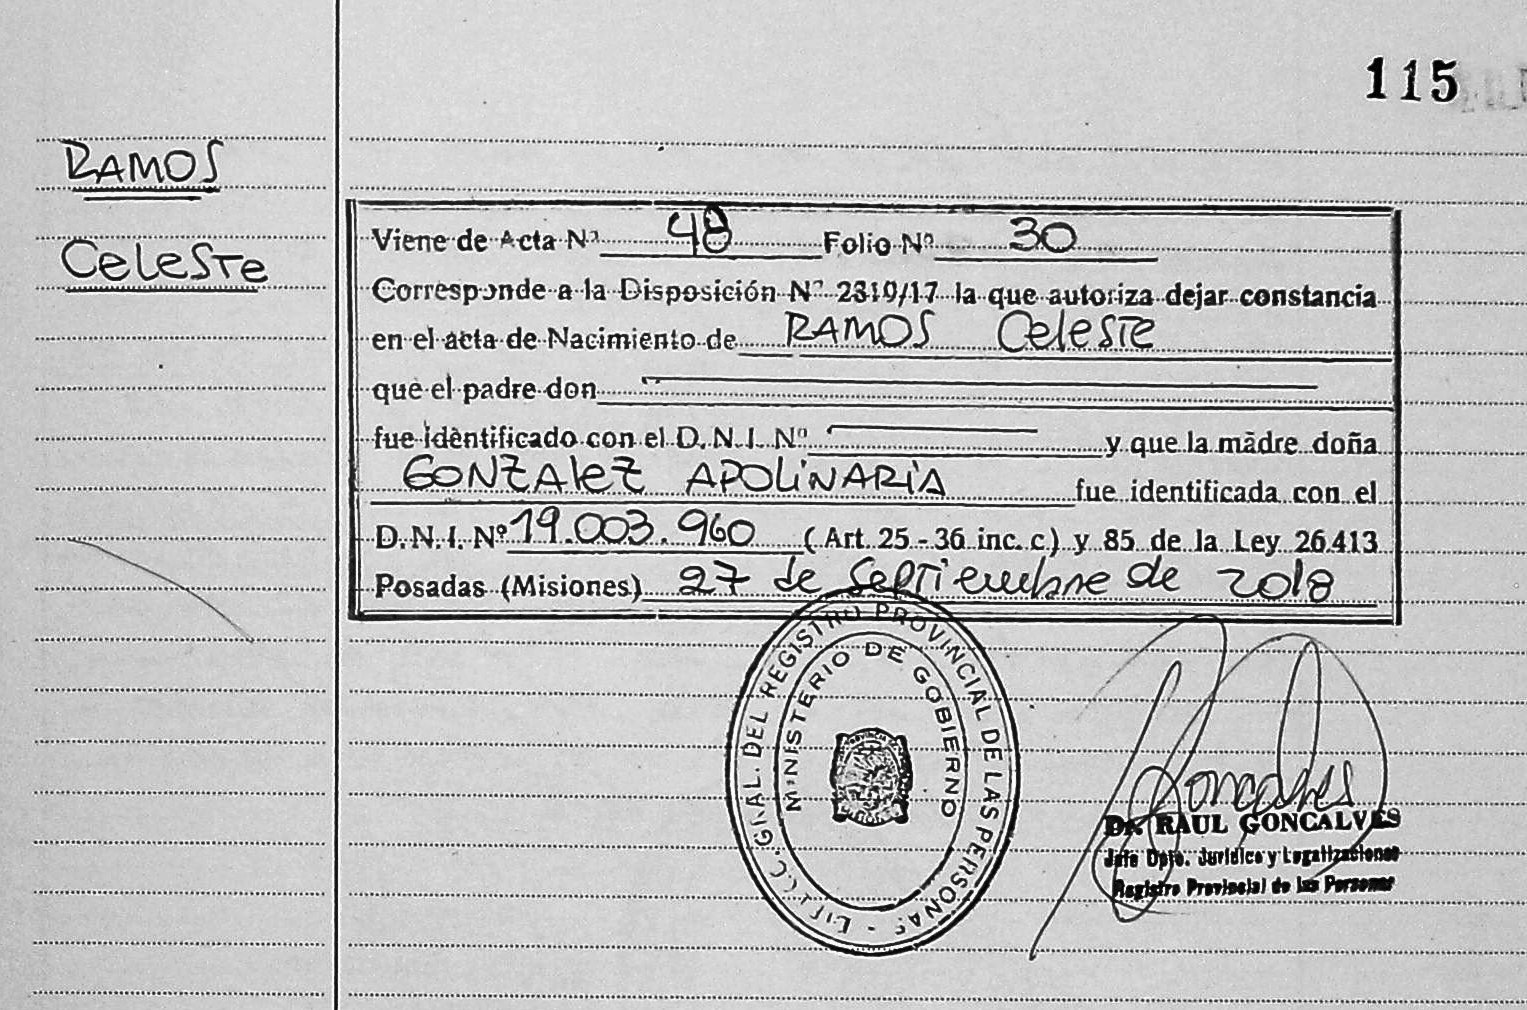 115
RAMOS
Celeste
Viene de Acta Nº 48 Folio Nº 30
Corresponde a la Disposición Nº 2319/17 la que autoriza dejar constancia
en el acta de Nacimiento de RAMOS Celeste
que el padre don
fue identificado con el D.N.I. Nº y que la madre doña
GONZALEZ APOLINARIA fue identificada con el
D.N.I. Nº 19.003.960 (Art. 25 - 36 inc. c) y 85 de la Ley 26.413
Posadas (Misiones) 27 de Septiembre de 2018
GRAL. DEL REGISTRO PROVINCIAL DE LAS PERSONAS
MINISTERIO DE GOBIERNO
Goncalves
Dr. RAUL GONCALVES
Jefe Dpto. Jurídico y Legalizaciones
Registro Provincial de las Personas